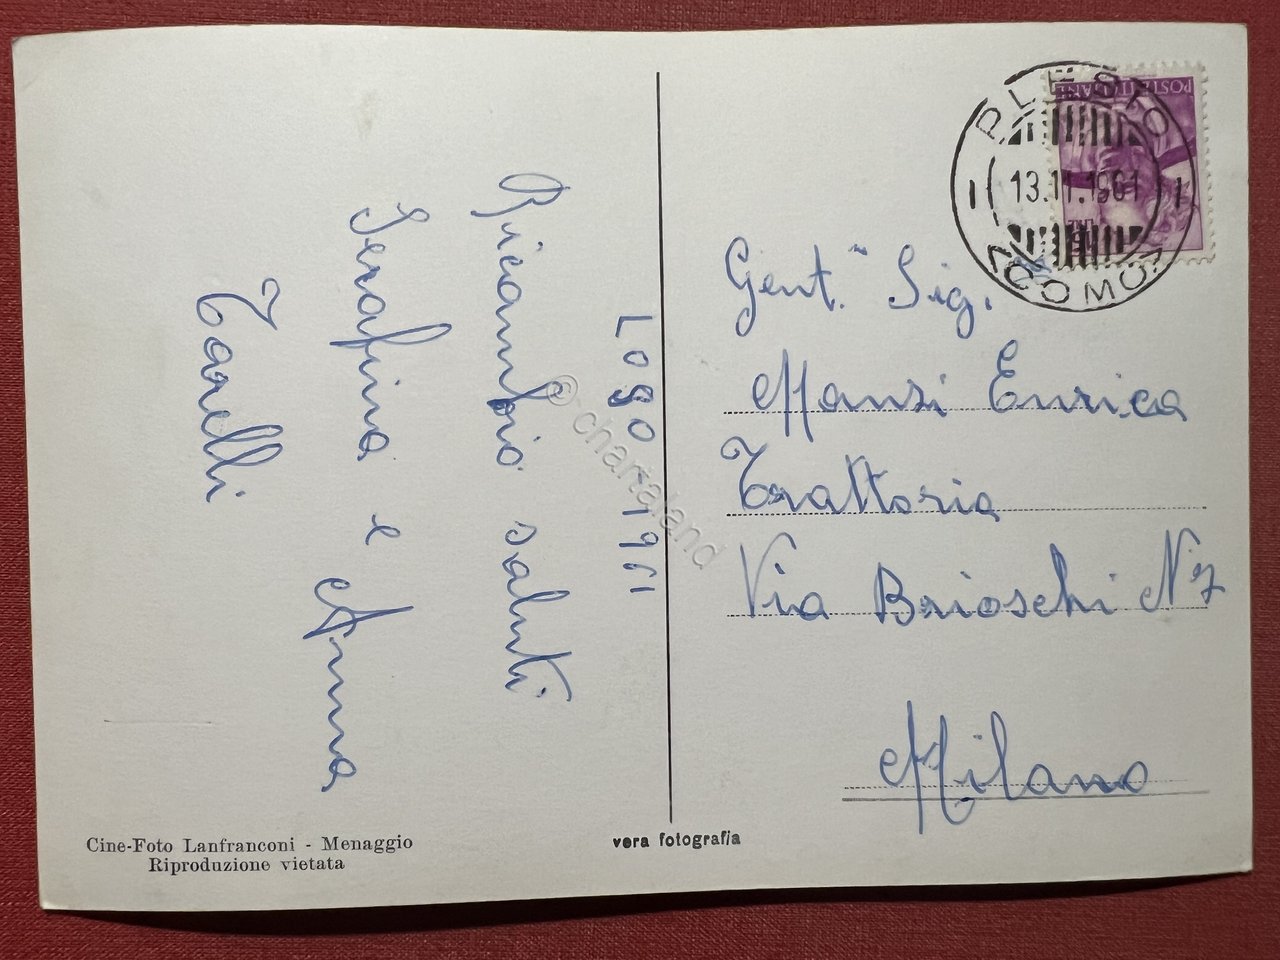 Logo 1961
Ricambio saluti
Serafina e Anna
Tarelli
Cine-Foto Lanfranconi - Menaggio
Riproduzione vietata
vera fotografia
PLESIO
13.11.1961
(COMO)
POSTE ITALIANE
LIRE 15
Gent.ᵐᵃ Sig.
Mansi Enrica
Trattoria
Via Brioschi N 7
Milano
© chartaland